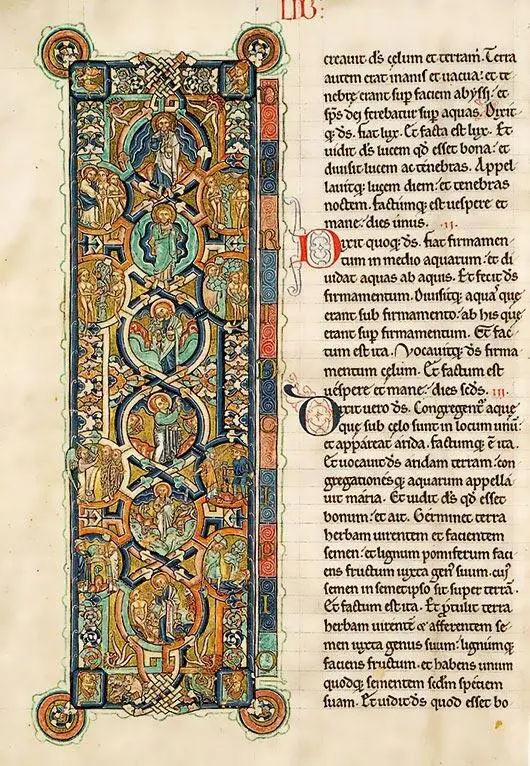 LIB:
IN PRINCIPIO
creauit ds celum et terram. Terra
autem erat inanis et uacua: et te
nebre erant sup faciem abyssi: et
sps dei ferebatur sup aquas. Dixit
q; ds. fiat lux. Et facta est lux. Et
uidit ds lucem qd esset bona: et
diuisit lucem ac tenebras. Appel
lauitq; lucem diem: et tenebras
noctem. factumq; est uespere et
mane: dies unus. .II.
Dixit quoq; ds. fiat firmamen
tum in medio aquarum: et di
uidat aquas ab aquis. Et fecit ds
firmamentum. Diuisitq; aquas que
erant sub firmamento: ab his que
erant sup firmamentum. Et fac
tum est ita. Vocauitq; ds firma
mentum celum. Et factum est
uespere et mane: dies scds. III.
Dixit uero ds. Congregent aque
que sub celo sunt in locum unu:
et appareat arida. factumq; e ita.
Et uocauit ds aridam terram: con
gregationesq; aquarum appella
uit maria. Et uidit ds qd esset
bonum: et ait. Germinet terra
herbam uirentem et facientem
semen: et lignum pomiferum faci
ens fructum iuxta gen suum. cui
semen in semetipso sit super terra.
Et factum est ita. Et ptulit terra
herbam uirente & afferentem se
men iuxta genus suum: lignumq;
faciens fructum. et habens unum
quodq; sementem scdm speciem
suam. Et uidit ds quod esset bo